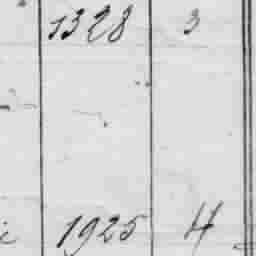 1328 3
1925 4